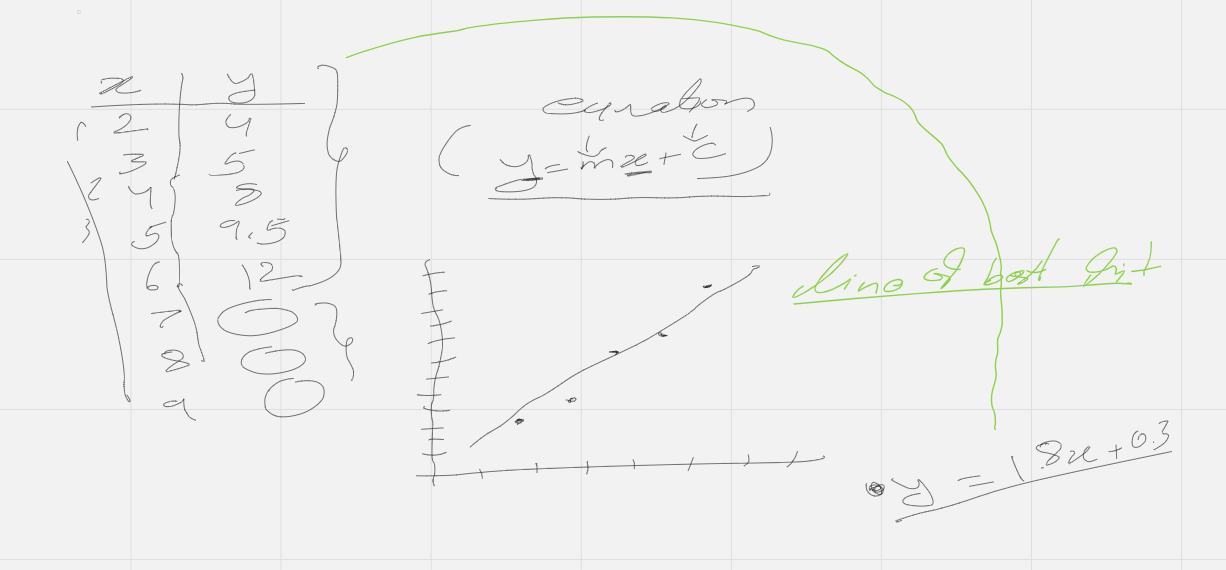 x y
1 2 4
3 5
2 4 8
3 5 9.5
6 12
7
8
9
equation
(y = mx + c)
line of best fit
y = 1.8x + 0.3